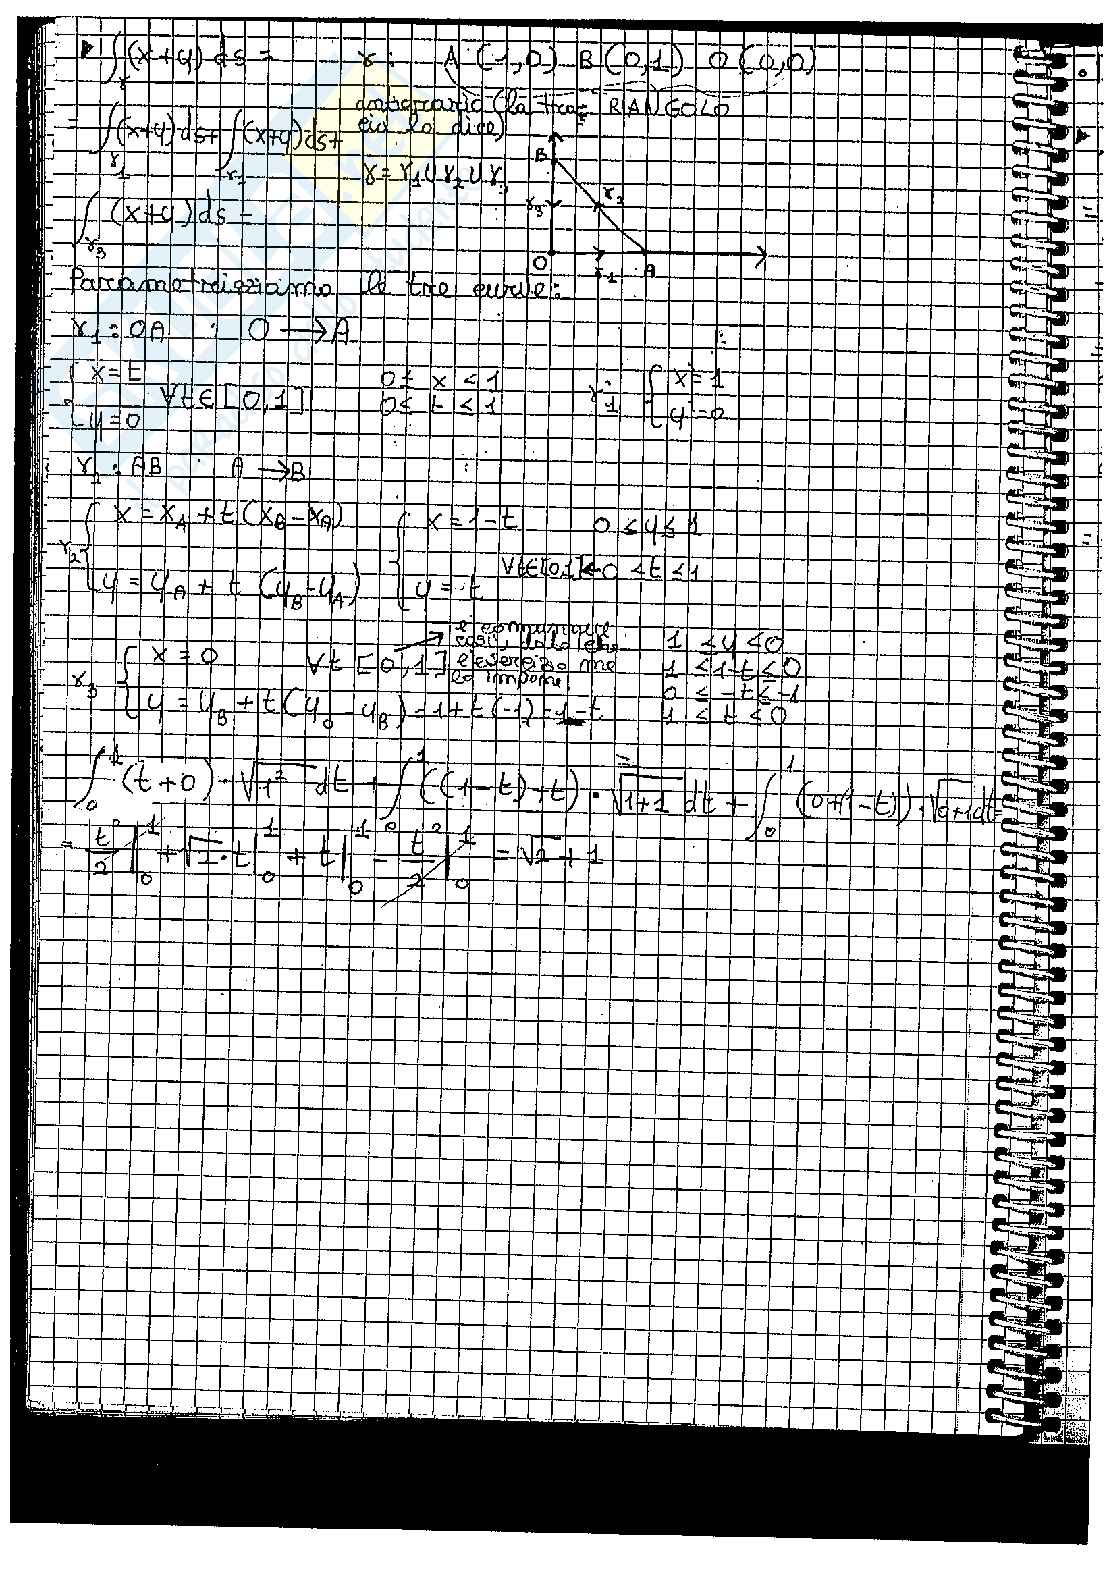 ∫γ (x+y) ds = γ: A (1,0) B (0,1) O (0,0)
antiorario (la trac TRIANGOLO
cia lo dice)
∫γ1 (x+y) ds + ∫γ2 (x+y) ds +
γ = γ1 ∪ γ2 ∪ γ3
∫γ3 (x+y) ds =
B
γ3 γ2
O γ1 A
Parametrizziamo le tre curve:
γ1: OA : O → A
{ x = t
y = 0 ∀t ∈ [0,1] 0 ≤ x ≤ 1
0 ≤ t ≤ 1
γ1' { x' = 1
y' = 0
γ1: AB : A → B
γ2 { x = xA + t (xB - xA) { x = 1 - t 0 ≤ y ≤ 1
y = yA + t (yB - yA) y = t ∀t∈[0,1] ← 0 < t ≤ 1
γ3 { x = 0 ∀t [0,1] → è comunque così, solo che l'esercizio me lo impone
y = yB + t (yO - yB) = 1 + t (-1) = 1 - t
1 ≤ y ≤ 0
1 ≤ 1-t ≤ 0
0 ≤ -t ≤ -1
1 ≤ t ≤ 0
∫₀¹ (t+0) · √1² dt + ∫₀¹ ((1-t)+t) · √1+1 dt + ∫₀¹ (0+(1-t)) · √0+1 dt =
= t²/2 |₀¹ + √2 · t |₀¹ + t |₀¹ - t²/2 |₀¹ = √2 + 1